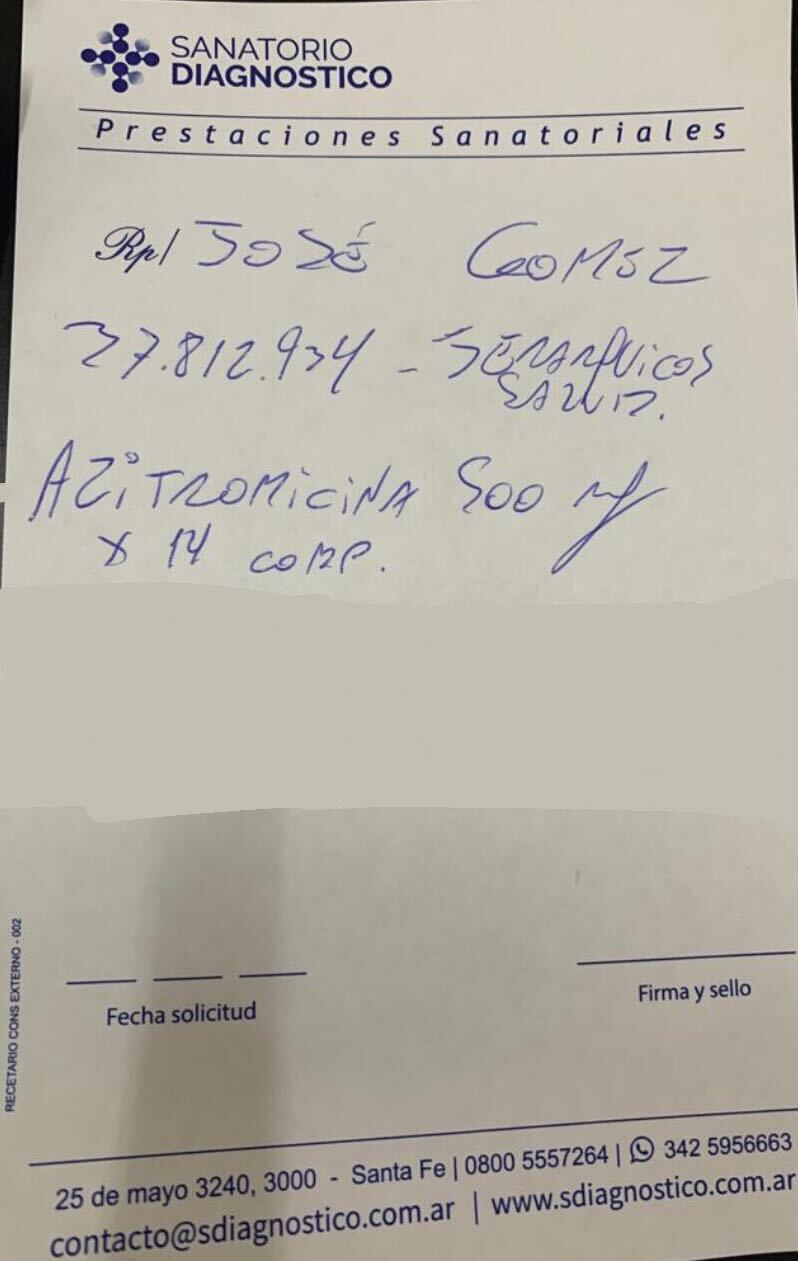 SANATORIO
DIAGNOSTICO
Prestaciones Sanatoriales
Rp/ JOSÉ GOMEZ
37.812.934 - JERARQUICOS
SALUD.
AZITROMICINA 500 mg
x 14 COMP.
RECETARIO CONS EXTERNO - 002
Fecha solicitud
Firma y sello
25 de mayo 3240, 3000 - Santa Fe | 0800 5557264 | 342 5956663
contacto@sdiagnostico.com.ar | www.sdiagnostico.com.ar